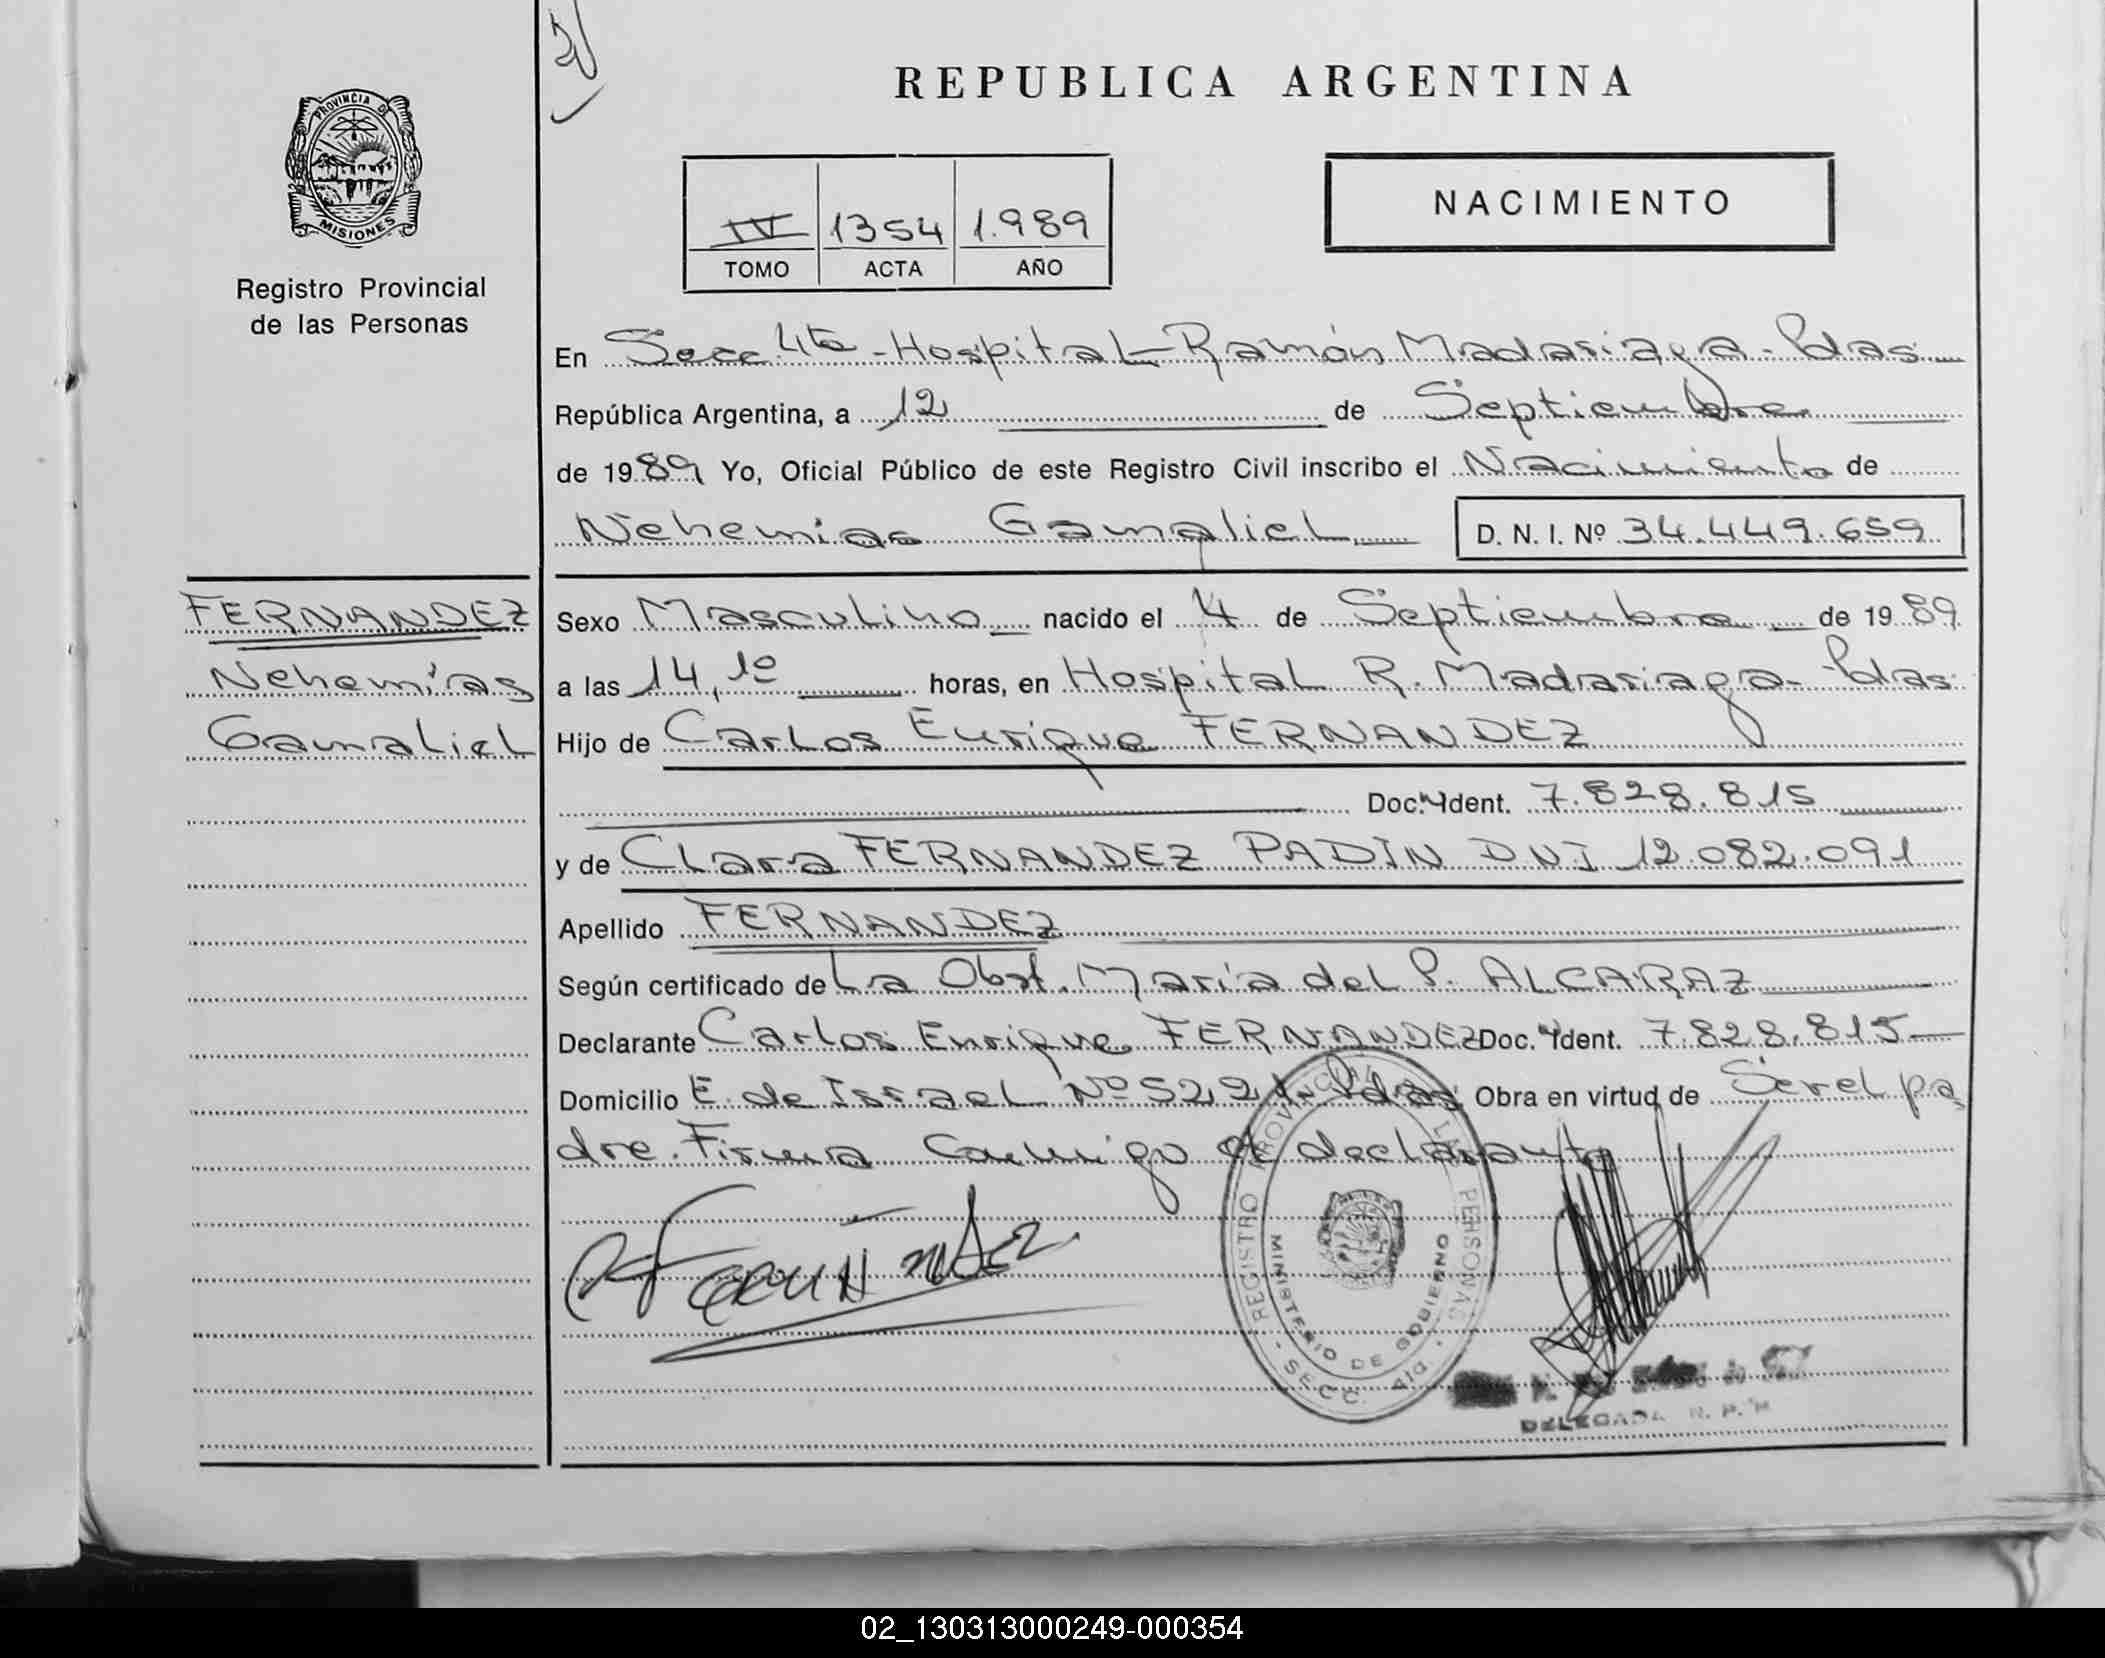 REPUBLICA ARGENTINA
PROVINCIA DE
MISIONES
Registro Provincial
de las Personas
IV 1354 1.989
TOMO ACTA AÑO
NACIMIENTO
En Secc 4ta - Hospital - Ramón Madariaga - Pdas
República Argentina, a 12 de Septiembre
de 1989 Yo, Oficial Público de este Registro Civil inscribo el Nacimiento de
Nehemias Gamaliel D. N. I. Nº 34.449.659
FERNANDEZ
Nehemías
Gamaliel
Sexo Masculino nacido el 4 de Septiembre de 1989
a las 14,10 horas, en Hospital R. Madariaga - Pdas
Hijo de Carlos Enrique FERNANDEZ
Doc. Ident. 7.828.815
y de Clara FERNANDEZ PADIN DNI 12.082.091
Apellido FERNANDEZ
Según certificado de La Obst. María del P. ALCARAZ
Declarante Carlos Enrique FERNANDEZ Doc. Ident. 7.828.815
Domicilio E. de Israel Nº 5221 - Pdas Obra en virtud de Ser el pa
dre. Firma Conmigo el declarante
REGISTRO PROVINCIAL DE LAS PERSONAS
MINISTERIO DE GOBIERNO
SECC. 4ta
DELEGADA R. P. P.
02_130313000249-000354